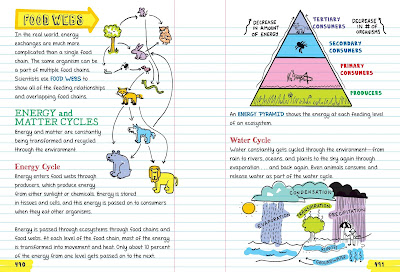 FOOD WEBS
In the real world, energy
exchanges are much more
complicated than a single food
chain. The same organism can be
a part of multiple food chains.
Scientists use FOOD WEBS to
show all of the feeding relationships
and overlapping food chains.
ENERGY and
MATTER CYCLES
Energy and matter are constantly
being transformed and recycled
through the environment.
Energy Cycle
Energy enters food webs through
producers, which produce energy
from either sunlight or chemicals. Energy is stored
in tissues and cells, and this energy is passed on to consumers
when they eat other organisms.
Energy is passed through ecosystems through food chains and
food webs. At each level of the food chain, most of the energy
is transformed into movement and heat. Only about 10 percent
of the energy from one level gets passed on to the next.
490
DECREASE
IN AMOUNT
OF ENERGY
TERTIARY
CONSUMERS
DECREASE
IN # OF
ORGANISMS
SECONDARY
CONSUMERS
PRIMARY
CONSUMERS
PRODUCERS
An ENERGY PYRAMID shows the energy at each feeding level
of an ecosystem.
Water Cycle
Water constantly gets cycled through the environment—from
rain to rivers, oceans, and plants to the sky again through
evaporation . . . and back again. Even animals consume and
release water as part of the water cycle.
CONDENSATION
EVAPORATION
TRANSPIRATION
PRECIPITATION
491